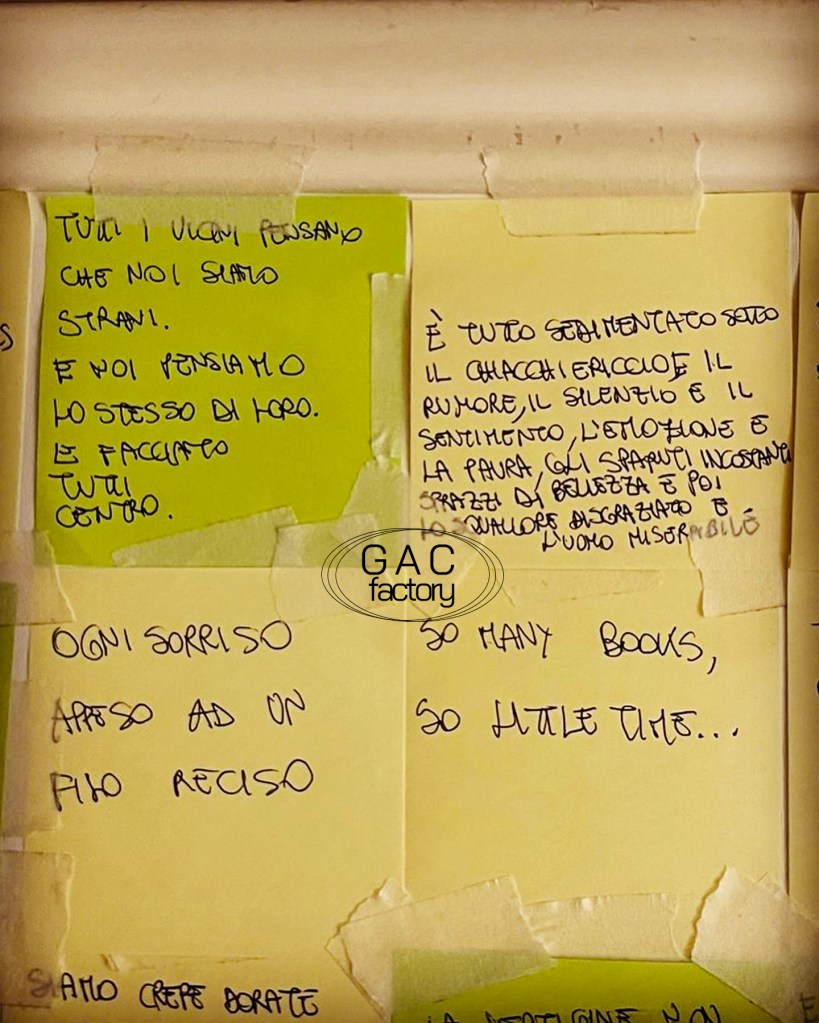 TUTTI I VICINI PENSANO
CHE NOI SIAMO
STRANI.
E NOI PENSIAMO
LO STESSO DI LORO.
E FACCIAMO
TUTTI
CENTRO.
È TUTTO SEDIMENTATO SOTTO
IL CHIACCHIERICCIO E IL
RUMORE, IL SILENZIO E IL
SENTIMENTO, L'EMOZIONE E
LA PAURA, GLI SPARUTI INCOSTANTI
SPRAZZI DI BELLEZZA E POI
LO SQUALLORE DISGRAZIATO E
L'UOMO MISERABILE
GAC
factory
OGNI SORRISO
APPESO AD UN
FILO RECISO
SO MANY BOOKS,
SO LITTLE TIME...
SIAMO CREPE DORATE
LA VERTIGINE NON